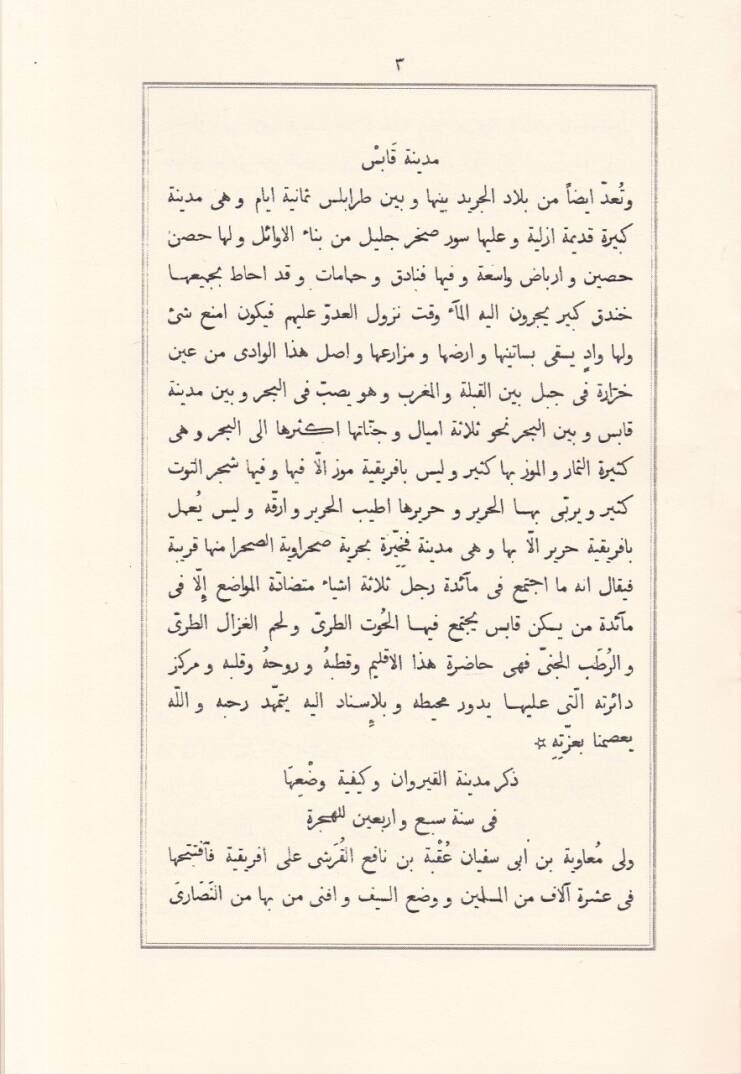 ٣
مدينة قَابِسْ
وتُعدّ ايضاً من بلاد الجريد بينها و بين طرابلس ثمانية ايام و هى مدينة
كبيرة قديمة ازلية و عليها سور صخر جليل من بناء الاوائل و لها حصن
حصين و ارباض واسعة و فيها فنادق و حمامات و قد احاط بجميعها
خندق كبير يجرون اليه المآء وقت نزول العدوّ عليهم فيكون امنع شئ
ولها وادٍ يسقى بساتينها و ارضها و مزارعها و اصل هذا الوادى من عين
خرّارة فى جبل بين القبلة و المغرب و هو يصبّ فى البحر و بين مدينة
قابس و بين البحر نحو ثلاثة اميال و جنّاتها اكثرها الى البحر و هى
كثيرة الثمار و الموز بها كثير و ليس بافريقية موز الّا فيها و فيها شجر التوت
كثير و يربّى بها الحرير و حريرها اطيب الحرير و ارقّه و ليس يُعمل
بافريقية حرير الّا بها و هى مدينة بحرية صحراوية الصحرا منها قريبة
فيقال انه ما اجتمع فى مآئدة رجل ثلاثة اشياء متضادّة المواضع إلّا فى
مآئدة من يسكن قابس يجتمع فيها الحُوت الطرىّ و لحم الغزال الطرىّ
و الرُطَب الجنىّ فهى حاضرة هذا الاقليم وقطبهُ و روحهُ وقلبه و مركز
دائرته الّتى عليها يدور محيطه و بلإسناد اليه يتمّهد رحبه و اللّه
يعصمنا بعزّتِهِ ۞
ذكر مدينة القيروان و كيفية وضْعِهَا
فى سنة سبع و اربعين للهجرة
ولى مُعاوية بن أبى سفيان عُقْبة بن نافع القُرَشى على افريقية فآفتتحها
فى عشرة آلاف من المسلمين و وضع السيف و افنى من بها من النَصَارىَ